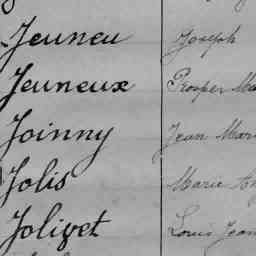 Jeuneu Joseph
Jeuneux Prosper Ma
Joinny Jean Mari
Jolis Marie
Jolivet Louis Jean